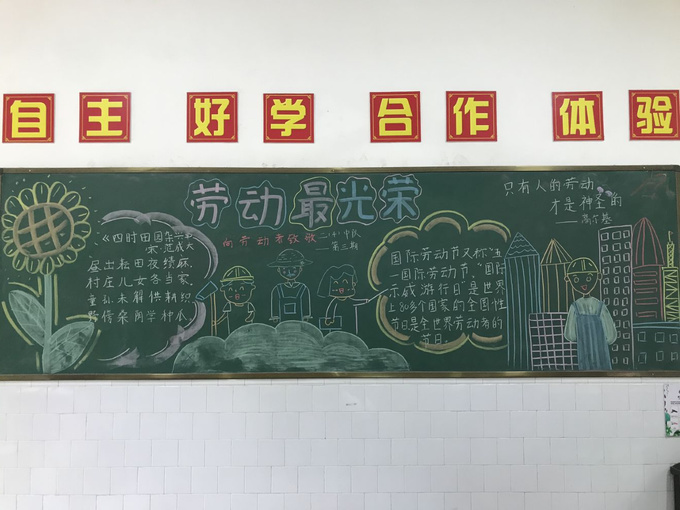 自主 好学 合作 体验
劳动最光荣
向劳动者致敬
第三期
《四时田园杂兴》
宋·范成大
昼出耘田夜绩麻
村庄儿女各当家
童孙未解供耕织
国际劳动节又称“五
一国际劳动节”“国际
示威游行日”是世界
上80多个国家的全国性
节日是全世界劳动者的
节日。
只有人的劳动
才是神圣的
——高尔基